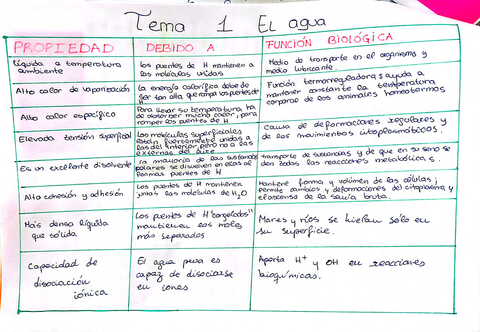 Tema 1 El agua
PROPIEDAD
DEBIDO A
FUNCIÓN BIOLÓGICA
Líquida a temperatura
ambiente
los puentes de H mantienen a
las moléculas unidas
Medio de transporte en el organismo y
medio lubricante.
Alto calor de vaporización
La energía calorífica debe de
ser tan alta, que rompa los puentes de
H.
Función termorreguladora; ayuda a
mantener constante la temperatura
corporal de los animales homeotermos
Alto calor específico
Para llevar su temperatura ha
de absorber mucho calor, para
romper los puentes de H
Elevada tensión superficial
Las moléculas superficiales
están fuertemente unidas a
las del interior pero no a las
externas del aire
Causa de deformaciones regulares y
de los movimientos citoplasmáticos.
Es un excelente disolvente
La mayoría de las sustancias
polares se disuelven en ella al
formar puentes de H
transporte de sustancias y de que en su seno se
den todas las reacciones metabólicas.
Alta cohesión y adhesión
Los puentes de H mantienen
juntas las moléculas de H2O
Mantiene forma y volumen de las células;
permite cambios y deformaciones del citoplasma y
el ascenso de la savia bruta.
Más densa líquida
que sólida
Los puentes de H "congelados"
mantienen las moles
más separadas
Mares y ríos se hielan solo en
su superficie.
Capacidad de
disociación
iónica
El agua pura es
capaz de disociarse
en iones
Aporta H+ y OH en reacciones
bioquímicas.